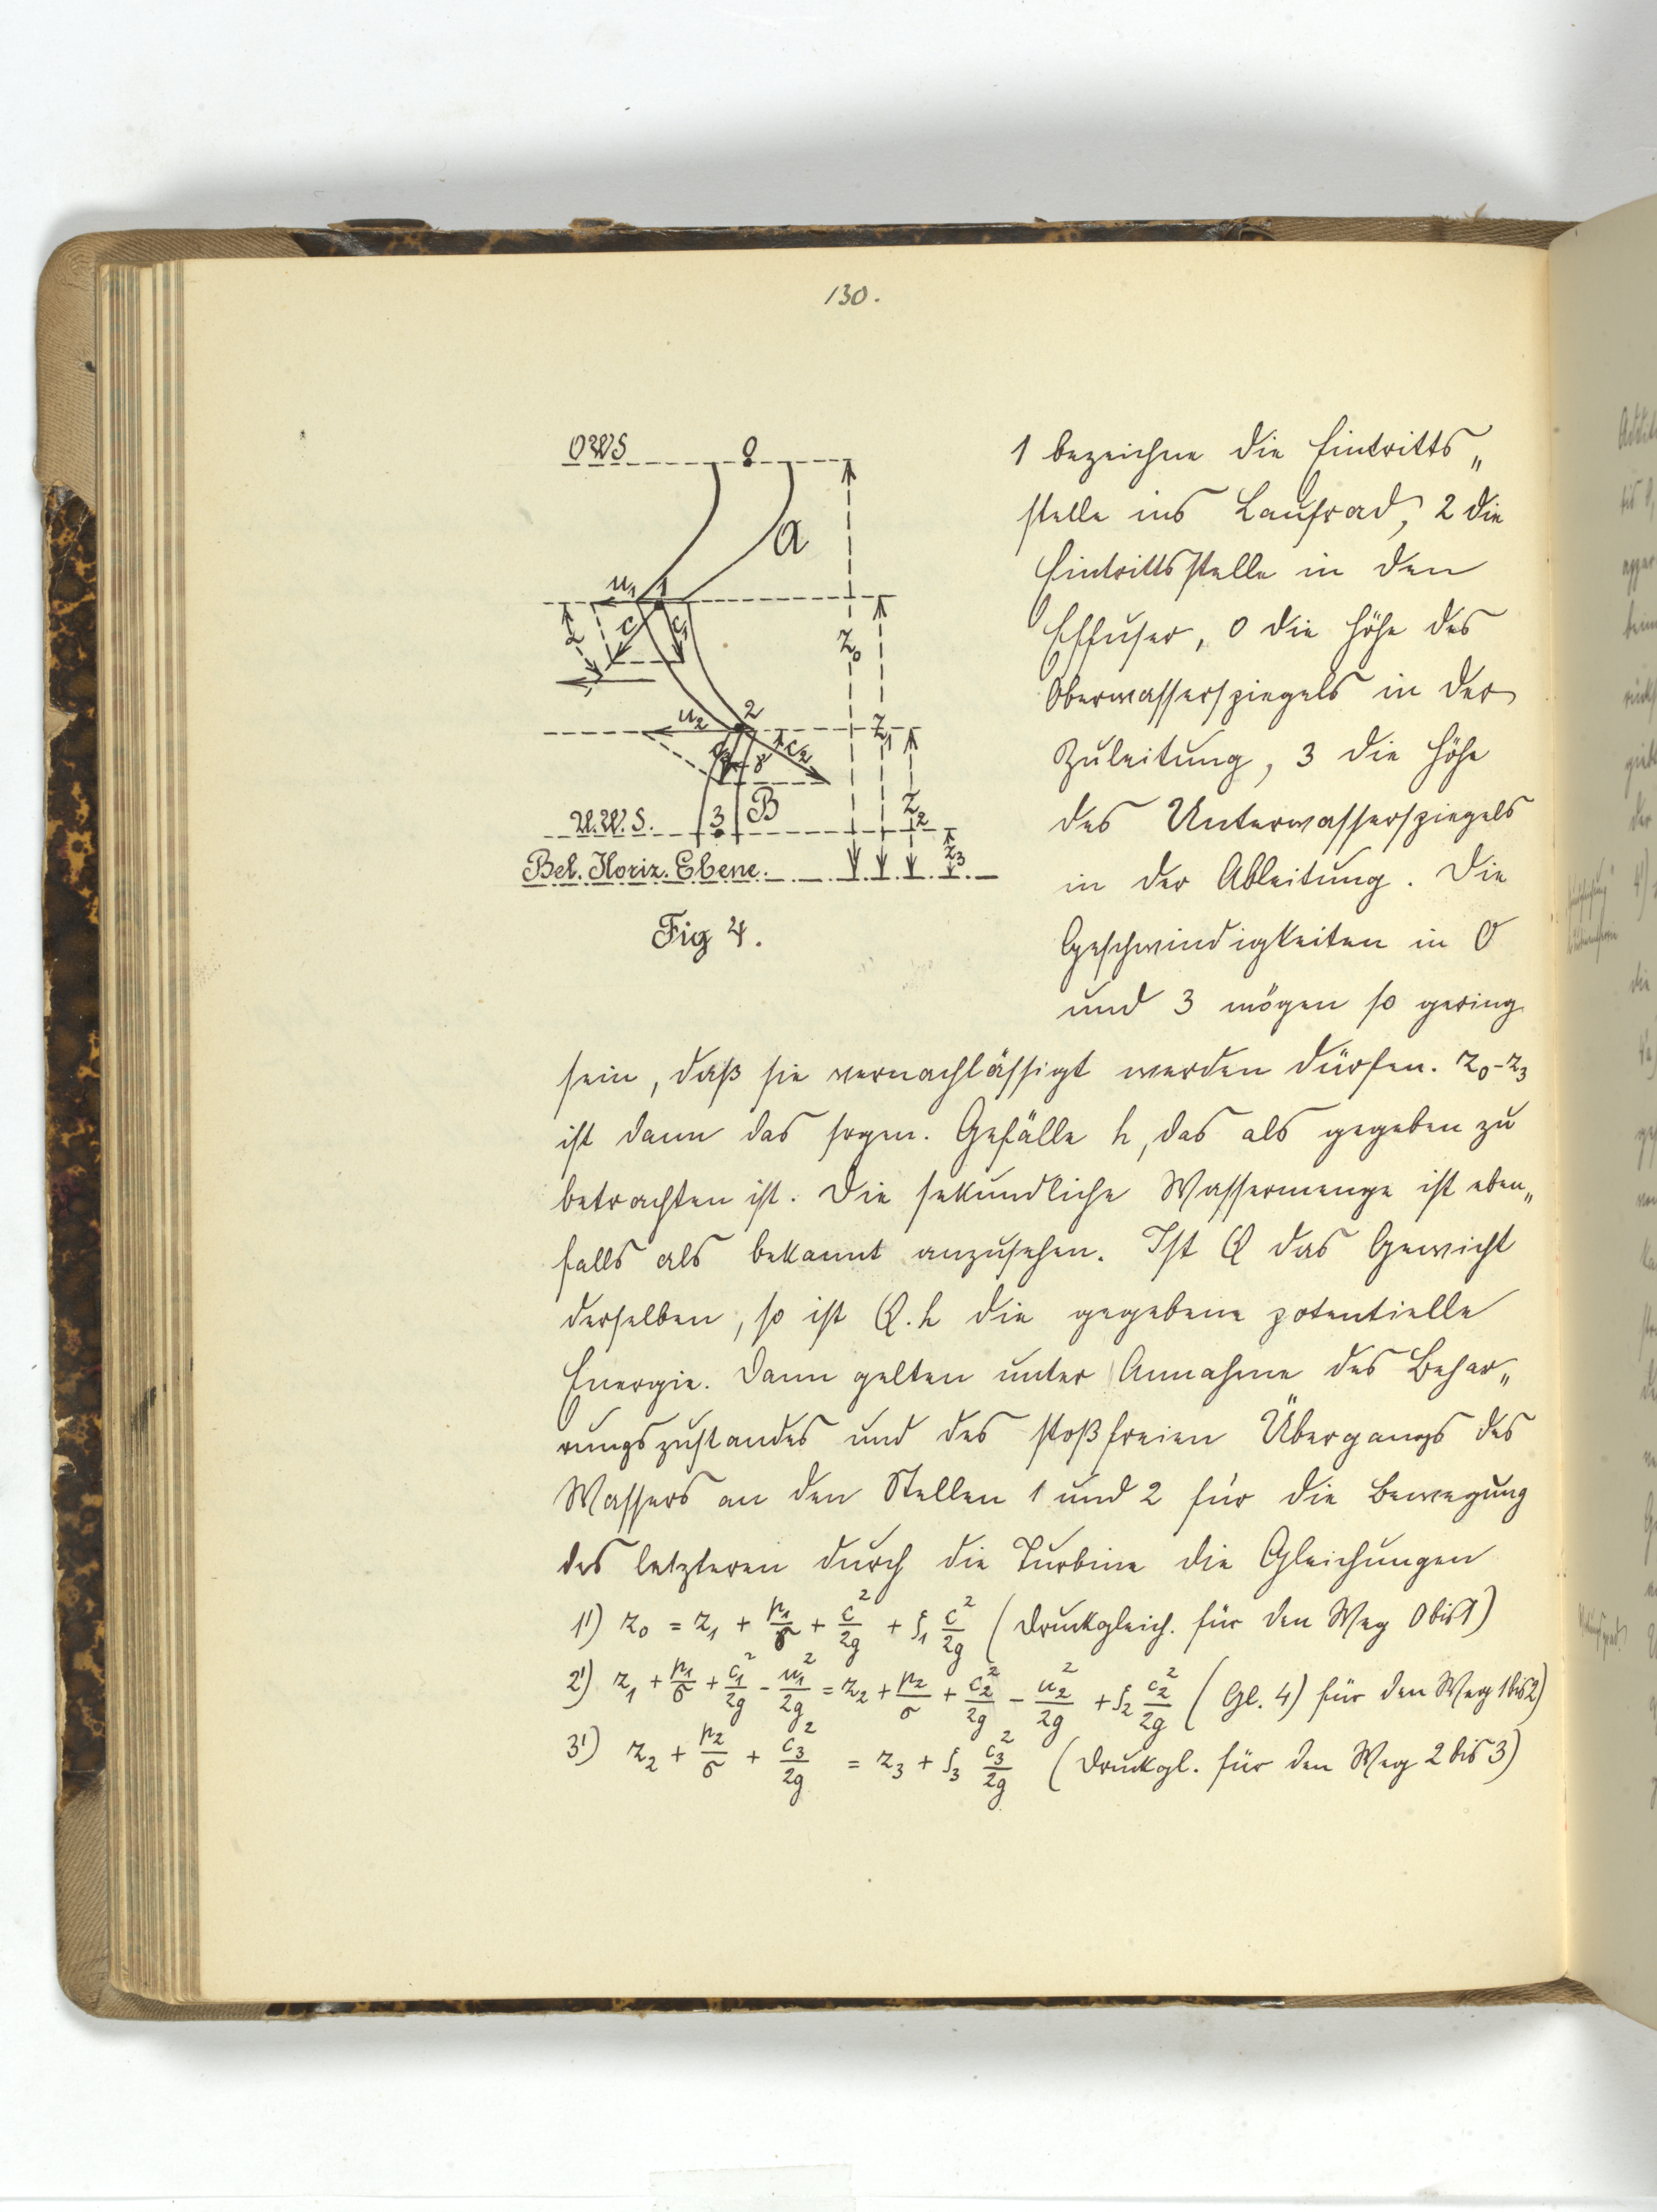 130.
OWS 0
a
u₁ 1
α c c₁
z₀
u₂ 2
z₁
c₃ γ c₂
B
z₂
U.W.S. 3
z₃
Bel. Horiz. Ebene.
Fig 4.
1 bezeichne die Eintritts„
stelle ins Laufrad, 2 die
Eintrittsstelle in den
Effuser, 0 die Höhe des
Oberwasserspiegels in der
Zuleitung, 3 die Höhe
des Unterwasserspiegels
in der Ableitung. Die
Geschwindigkeiten in 0
und 3 mögen so gering
sein, daß sie vernachlässigt werden dürfen. z₀-z₃
ist dann das sogen. Gefälle h, das als gegeben zu
betrachten ist. Die sekundliche Wassermenge ist eben„
falls als bekannt anzusehen. Ist Q das Gewicht
derselben, so ist Q.h die gegebene potentielle
Energie. Dann gelten unter Annahme des Behar„
rungszustandes und des stoßfreien Übergangs des
Wassers an den Stellen 1 und 2 für die Bewegung
des letzteren durch die Turbine die Gleichungen
1') z₀ = z₁ + p₁/σ + c²/2g + ξ₁ c²/2g (Druckgleich. für den Weg 0 bis 1)
2') z₁ + p₁/σ + c₁²/2g - u₁²/2g = z₂ + p₂/σ + c₂²/2g - u₂²/2g + ξ₂ c₂²/2g (Gl. 4) für den Weg 1 bis 2)
3') z₂ + p₂/σ + c₃²/2g = z₃ + ξ₃ c₃²/2g (Druckgl. für den Weg 2 bis 3)